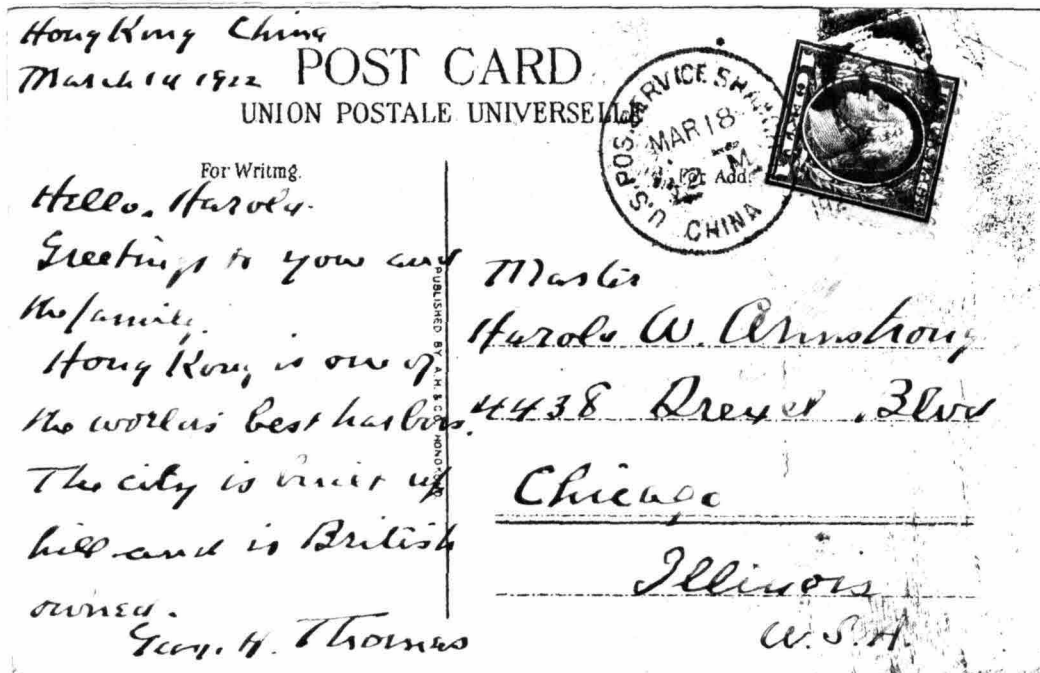 Hong Kong China
March 14 1922
POST CARD
UNION POSTALE UNIVERSELLE
U.S. POS. SERVICE SHANGHAI
MAR 18
M
CHINA
For Writing.
For Add.
Hello, Harold.
Greetings to you and
the family.
Hong Kong is one of
the world's best harbors.
The city is built up
hill and is British
owned.
Geo. H. Thomas
PUBLISHED BY A.H. & CO. HONG
Master
Harold W. Armstrong
4438 Drexel Blvd
Chicago
Illinois
U.S.A.